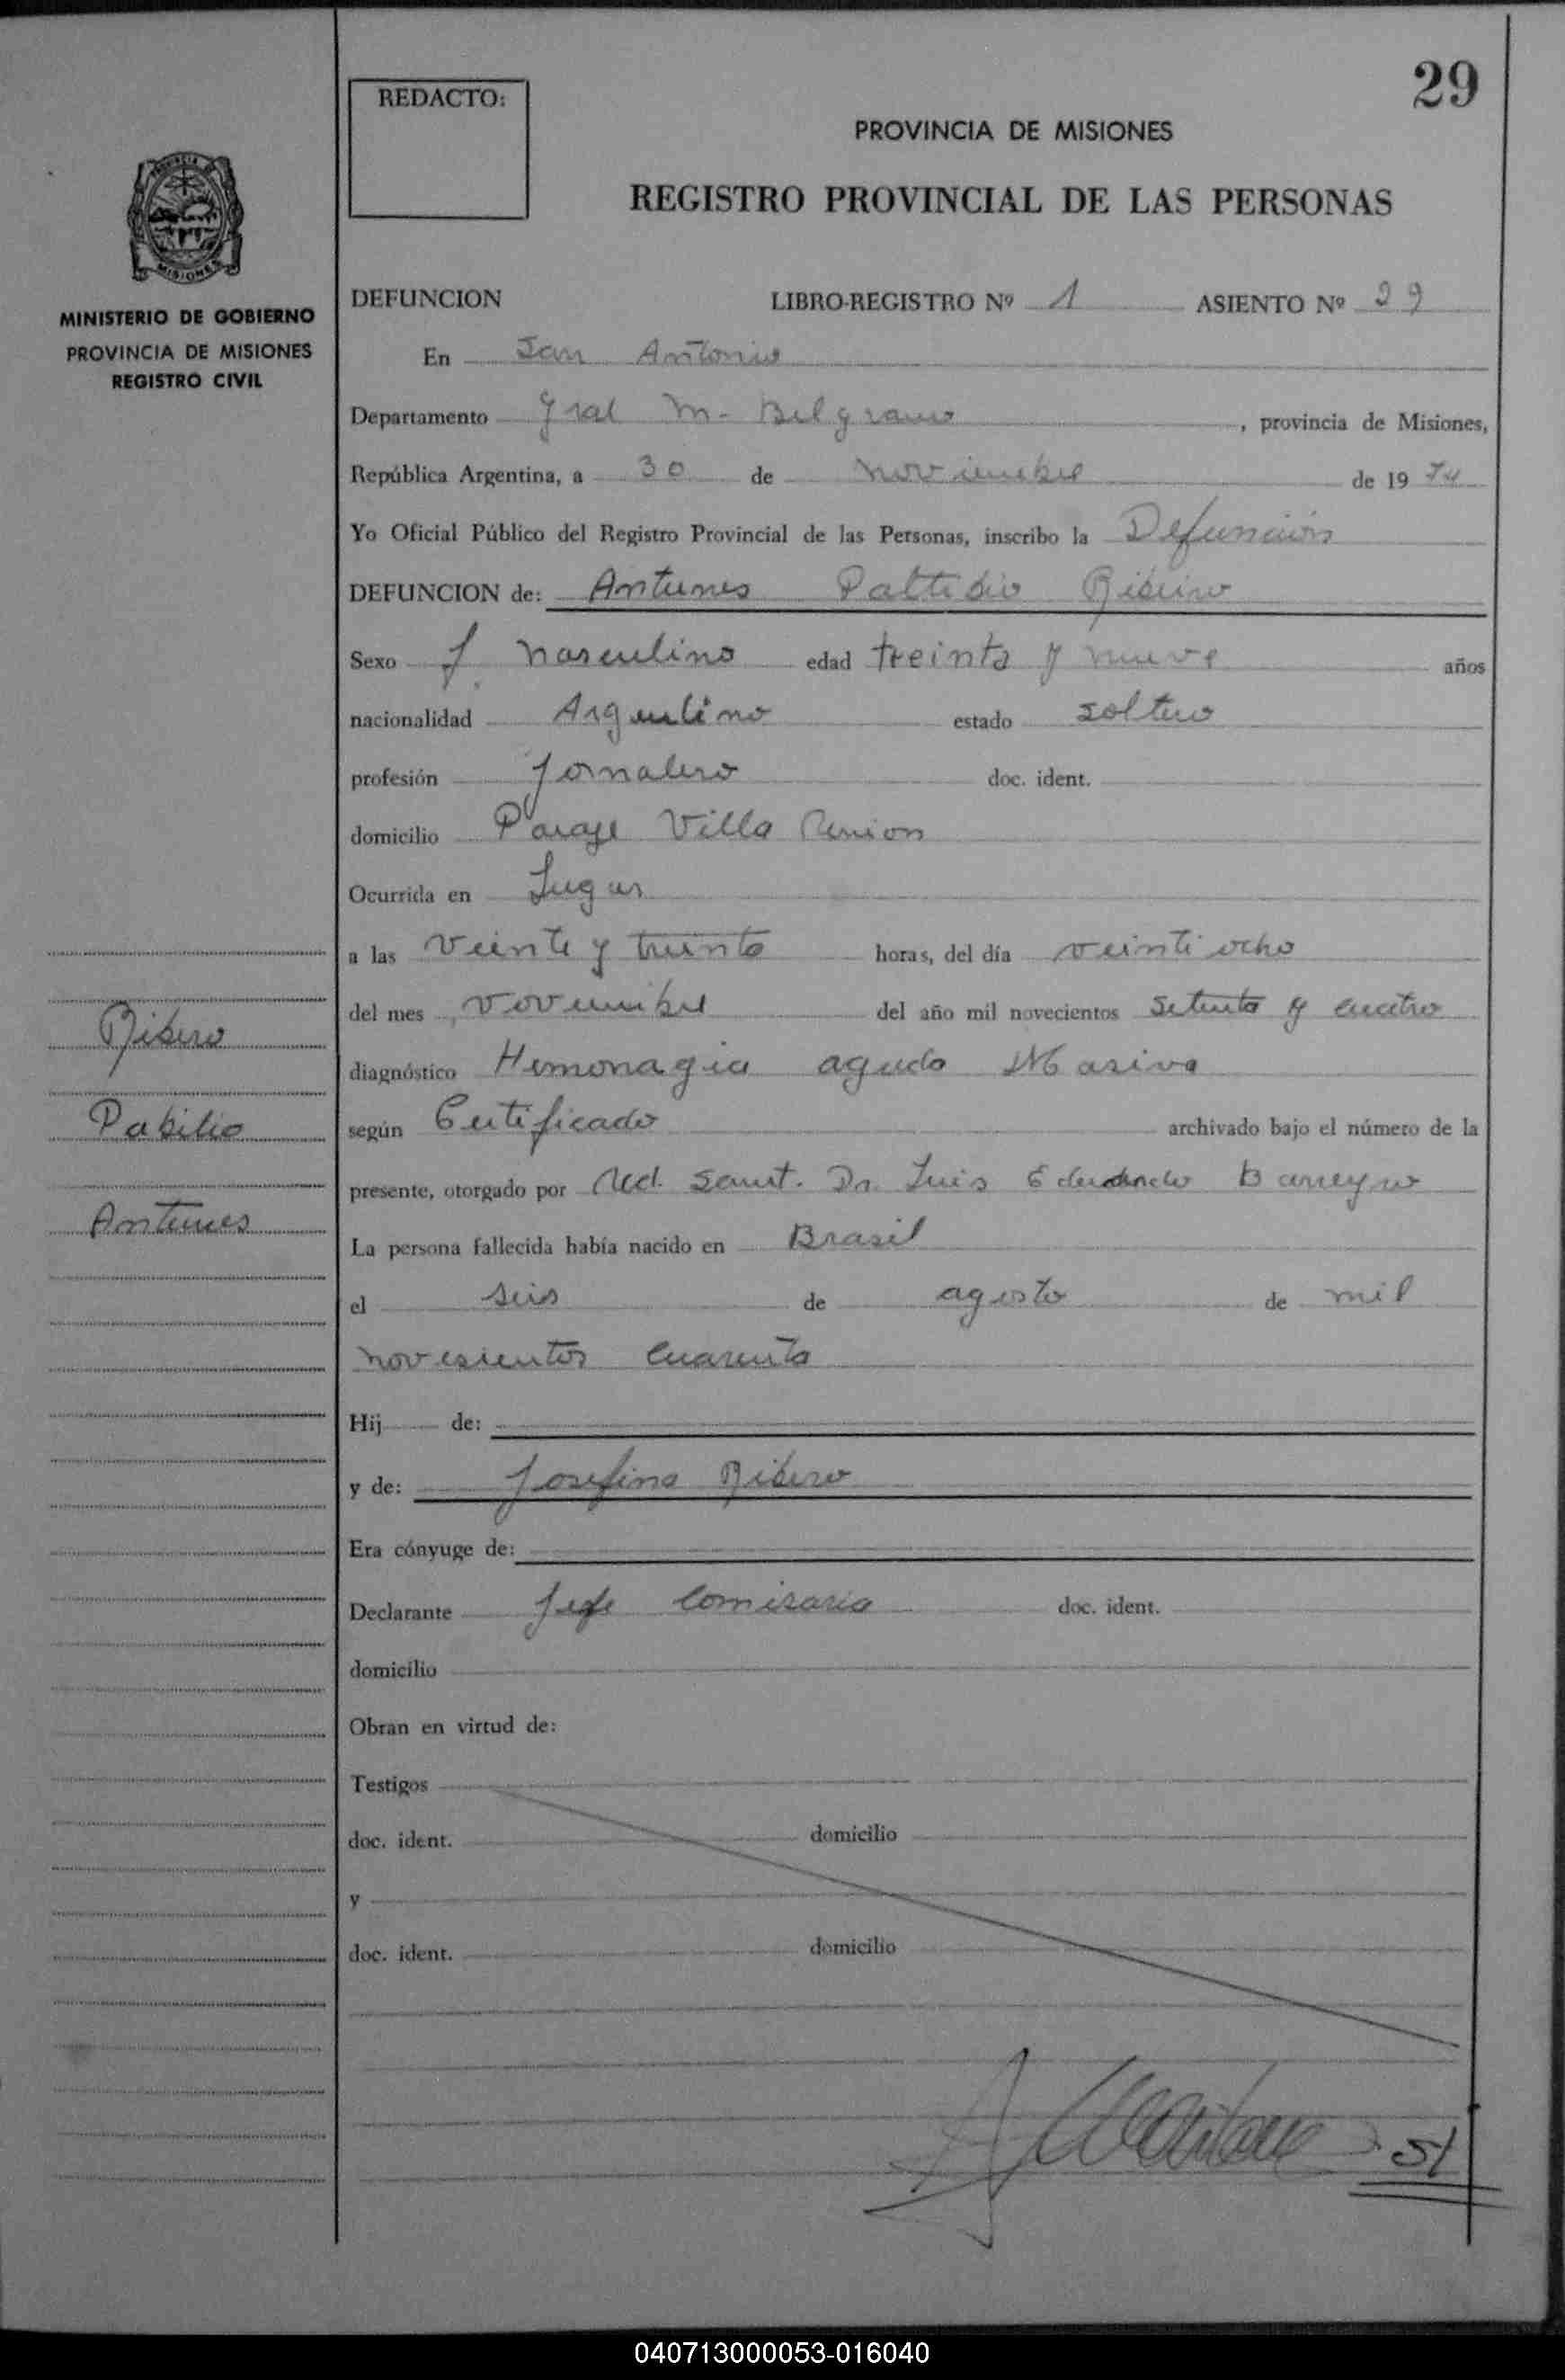 29
REDACTO:
PROVINCIA DE MISIONES
REGISTRO PROVINCIAL DE LAS PERSONAS
MISIONES
MINISTERIO DE GOBIERNO
PROVINCIA DE MISIONES
REGISTRO CIVIL
DEFUNCION LIBRO-REGISTRO Nº 1 ASIENTO Nº 29
En San Antonio
Departamento Gral M. Belgrano, provincia de Misiones,
República Argentina, a 30 de noviembre de 19 74
Yo Oficial Público del Registro Provincial de las Personas, inscribo la Defunción
DEFUNCION de: Antunes Ribeiro
Sexo masculino edad treinta y nueve años
nacionalidad Argentino estado soltero
profesión Jornalero doc. ident.
domicilio Paraje Villa Union
Ocurrida en Lugar
a las veinte y treinta horas, del día veintiocho
del mes Voviembre del año mil novecientos setenta y cuatro
diagnóstico Hemoragia aguda Masiva
según Certificado archivado bajo el número de la
presente, otorgado por Med. Sanit. Dr. Luis Eduardo Barreyro
La persona fallecida había nacido en Brasil
el seis de agosto de mil
novesientos cuarenta
Hij de:
y de: Josefina Ribero
Era cónyuge de:
Declarante Jefe Comisaria doc. ident.
domicilio
Obran en virtud de:
Testigos
doc. ident. domicilio
y
doc. ident. domicilio
Ribero
Pabilio
Antunes
51
040713000053-016040